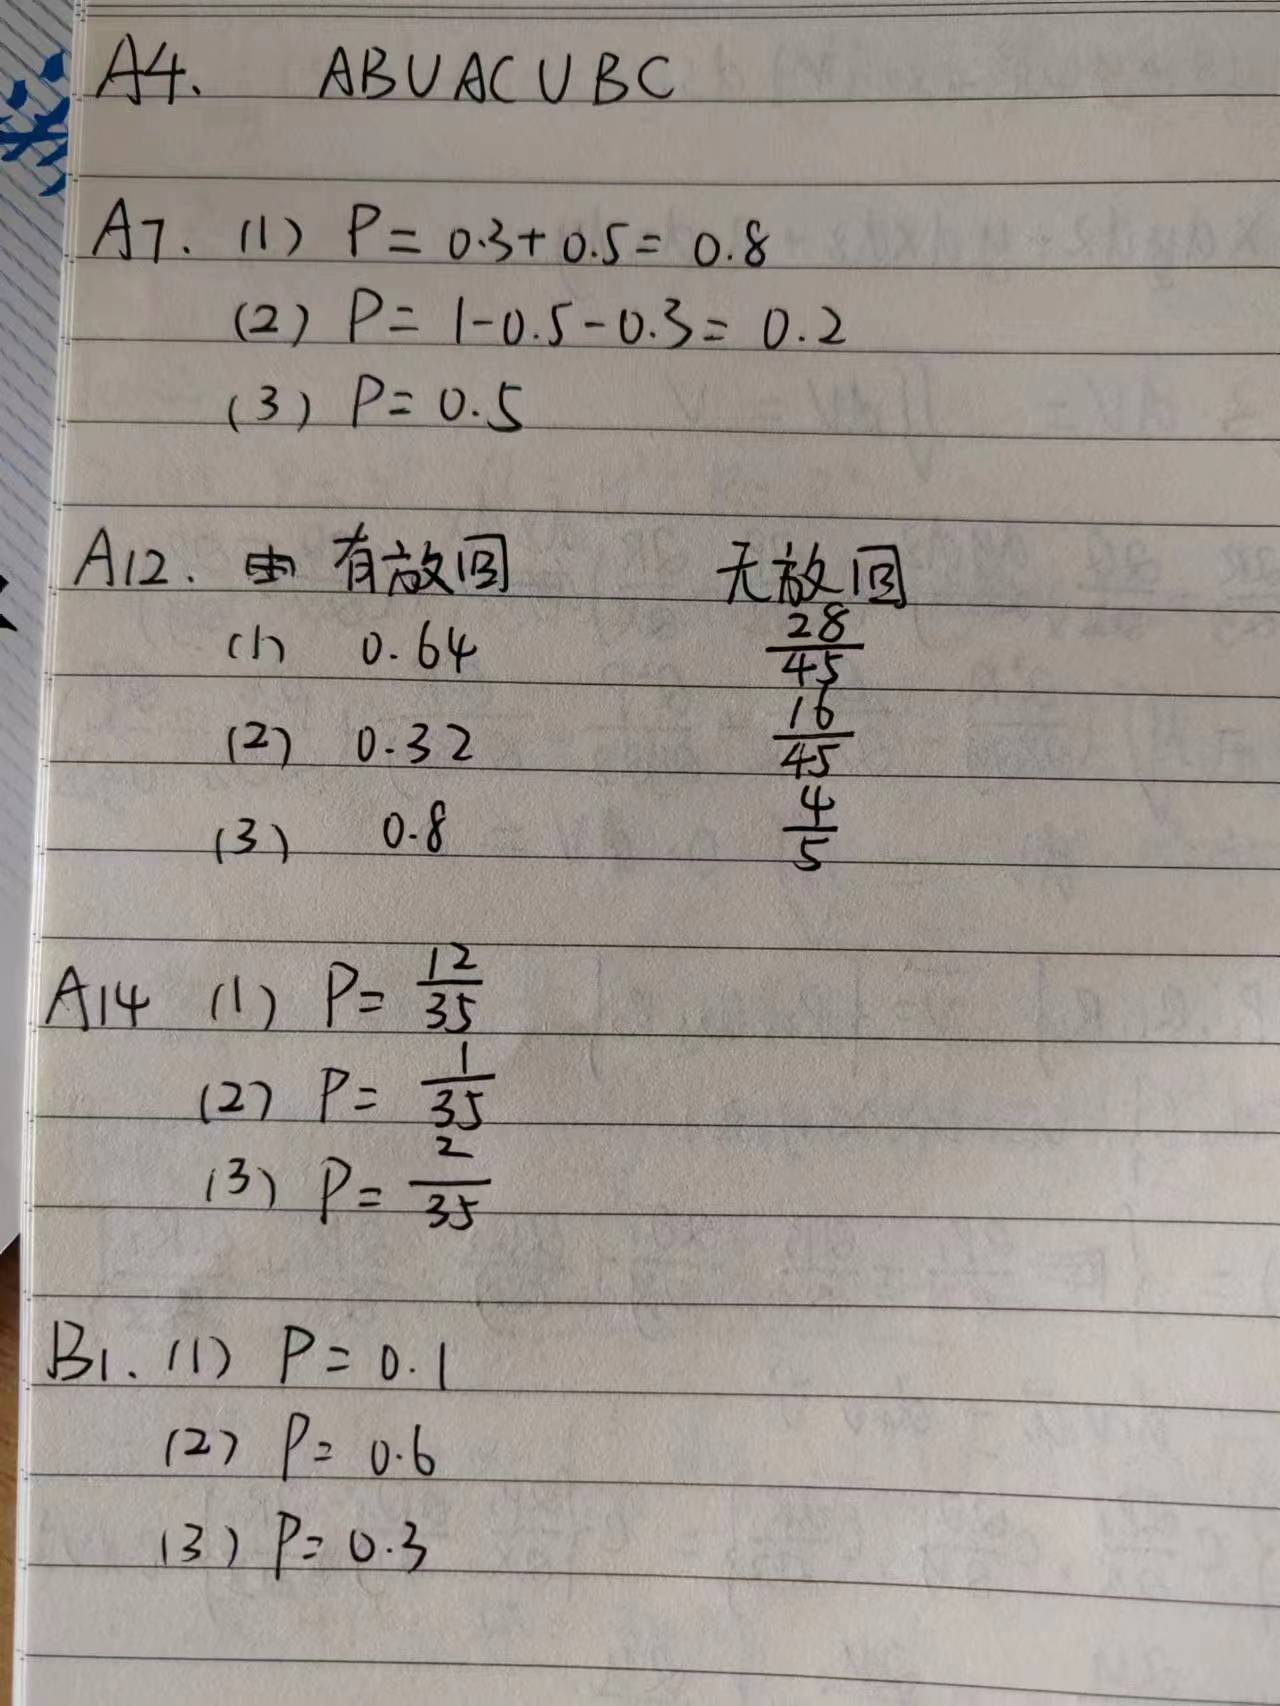 A4. AB∪AC∪BC
A7. (1) P = 0.3+0.5 = 0.8
(2) P = 1-0.5-0.3 = 0.2
(3) P = 0.5
A12. 有放回 无放回
(1) 0.64 28/45
(2) 0.32 16/45
(3) 0.8 4/5
A14 (1) P = 12/35
(2) P = 1/35
(3) P = 2/35
B1. (1) P = 0.1
(2) P = 0.6
(3) P = 0.3